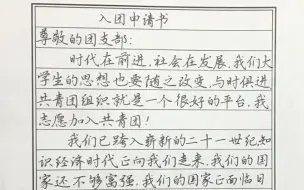 入团申请书
尊敬的团支部:
时代在前进,社会在发展,我们大
学生的思想也要随之改变,与时俱进,
共青团组织就是一个很好的平台,我
志愿加入共青团!
我们已跨入崭新的二十一世纪知
识经济时代正向我们走来,我们的国
家还不够富强,我们的国家正面临日